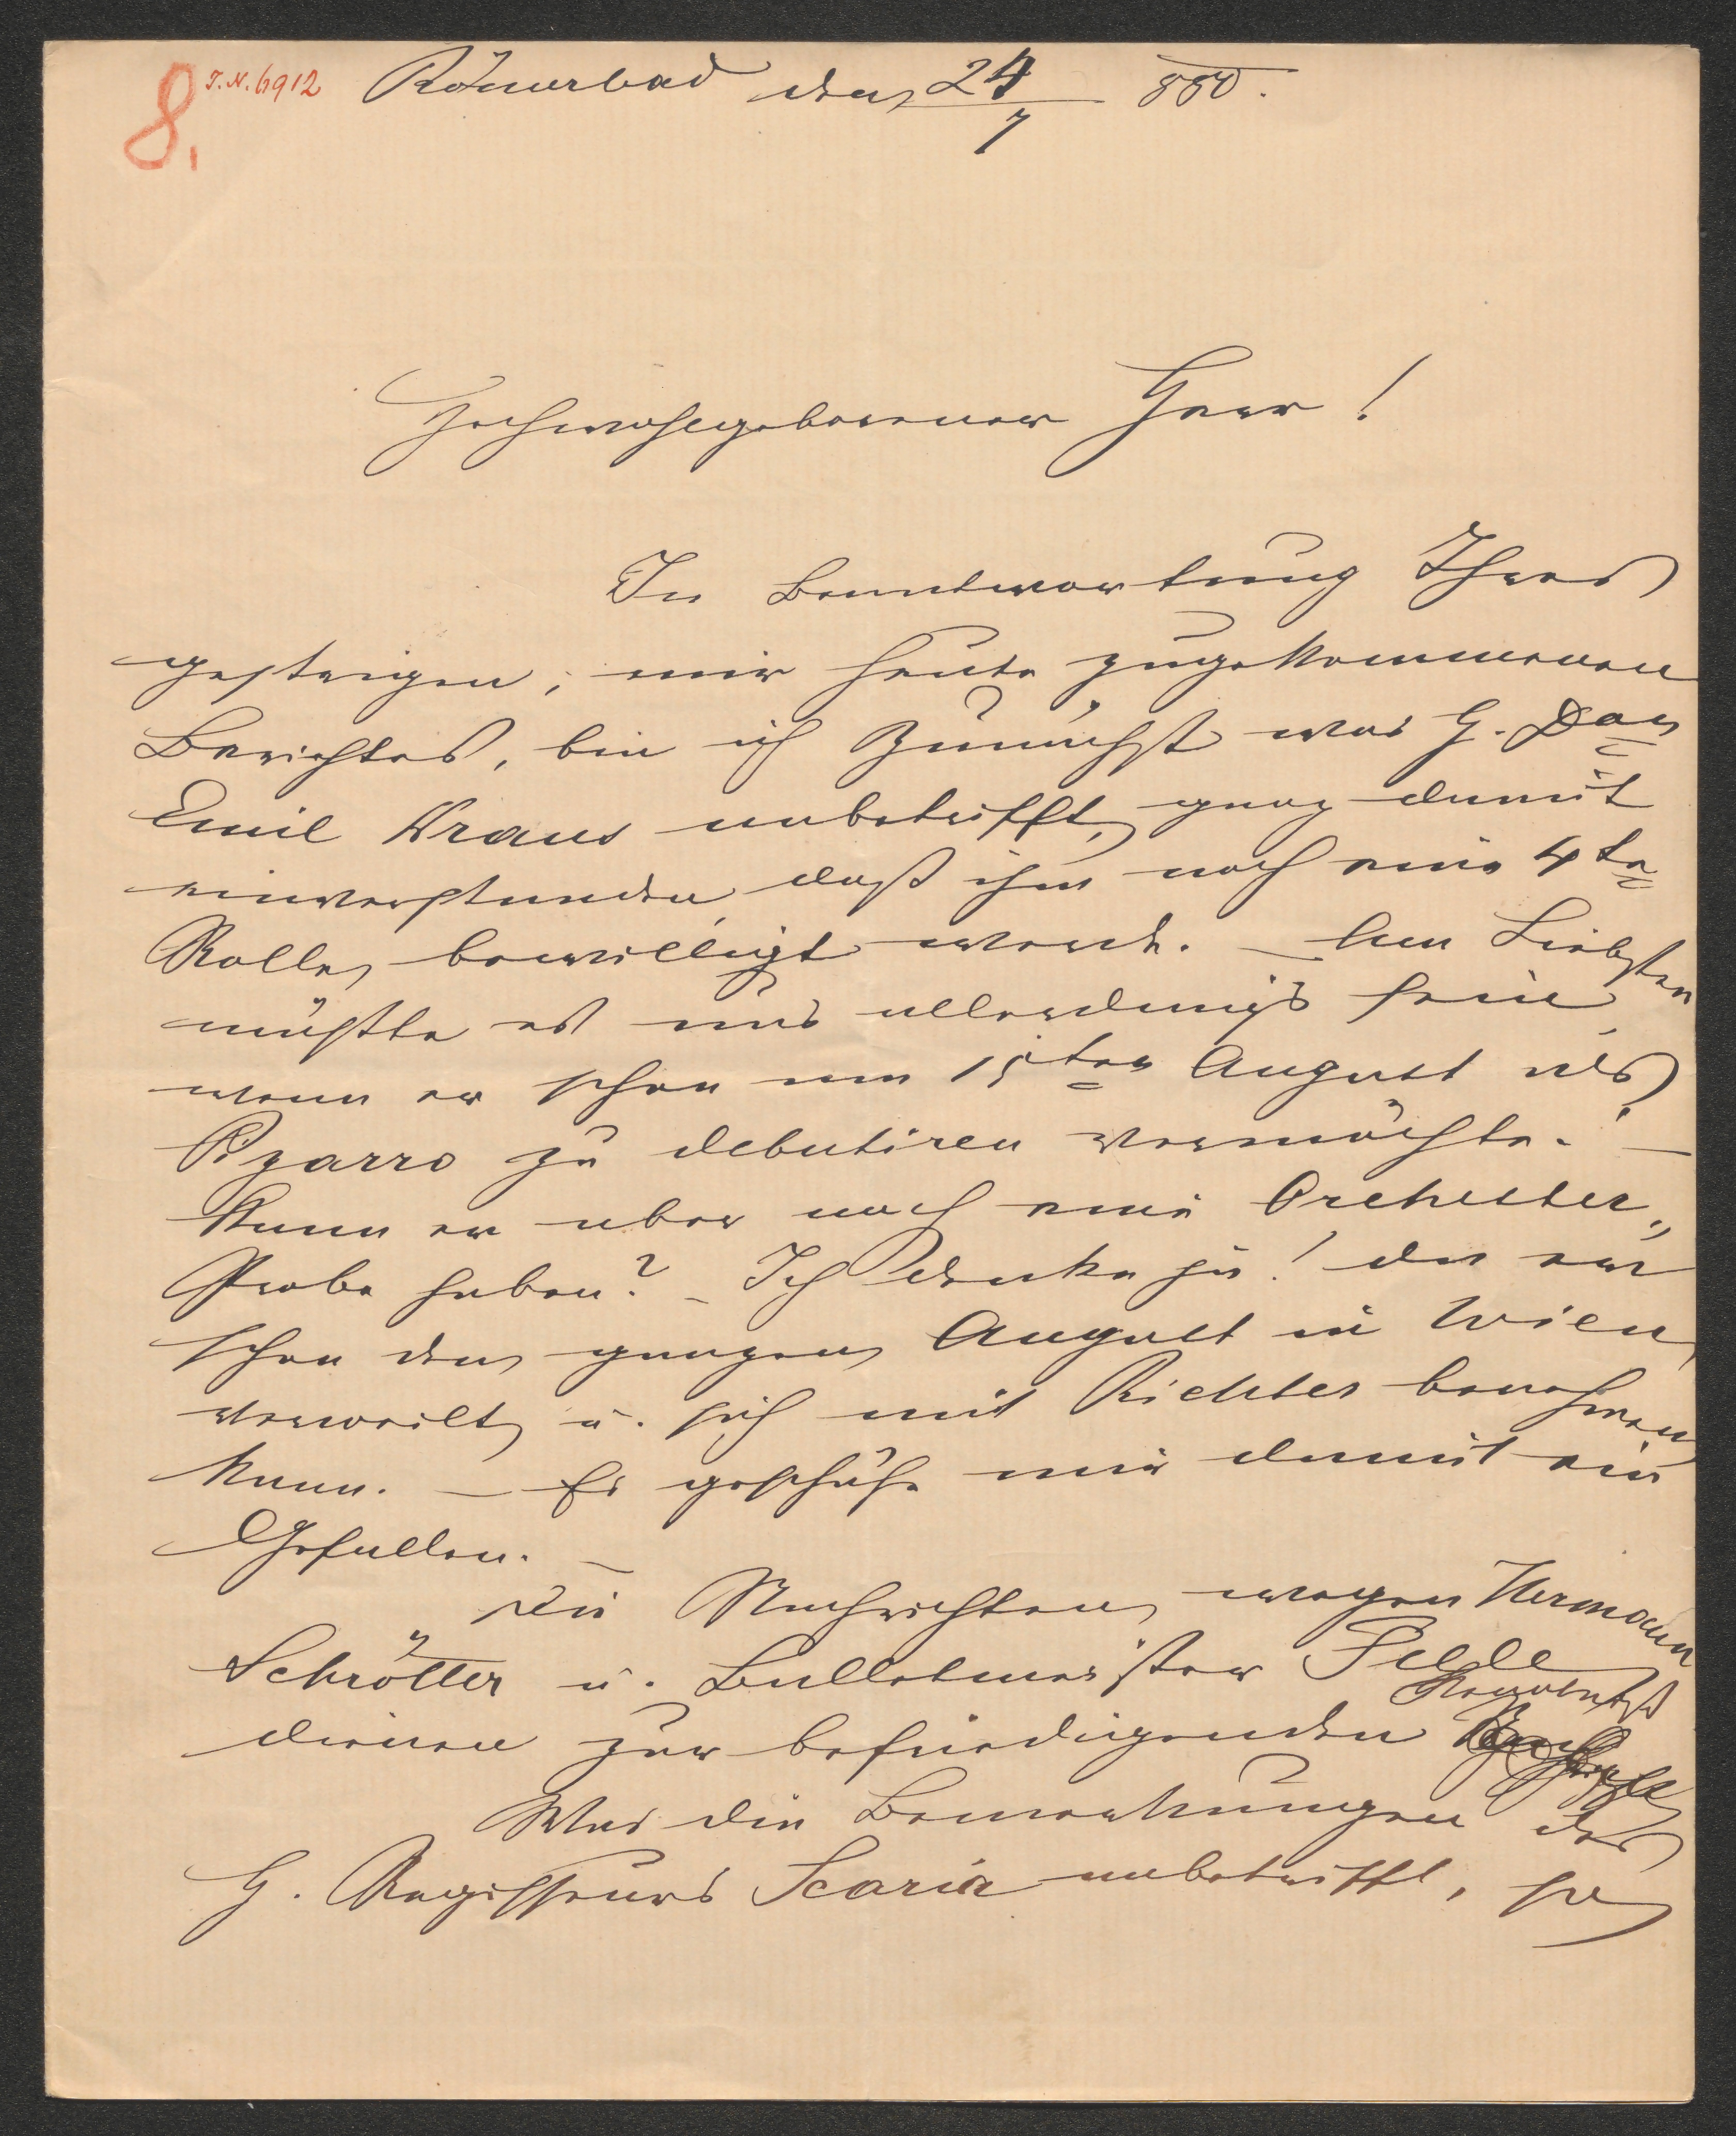 8. J.N. 6912 Römerbad den 24/7 880.
Hochwohlgeborener Herr!
In Beantwortung Ihres
gestrigen, mir heute zugekommenen
Berichtes, bin ich zunächst was H. Dor
Emil Kraus anbetrifft, ganz damit
einverstanden, daß ihm noch eine 4te
Rolle bewilligt werde. – Am Liebsten
müßte es uns allerdings sein,
wenn er schon am 15ten August als
Pizarro zu debutiren vermöchte. –
Kann er aber noch eine Orchester„
Probe haben? – Ich denke ja! da er
schon den ganzen August in Wien
verweilt, u. sich mit Richter benehmen
kann. – Es geschähe mir damit ein
Gefallen. –
Die Nachrichten wegen Hermann
Schrötter u. Balletmeister
dienen zur befriedigenden Kenntniß
Was die Bemerkungen des
H. Regisseurs Scaria anbetrifft, so